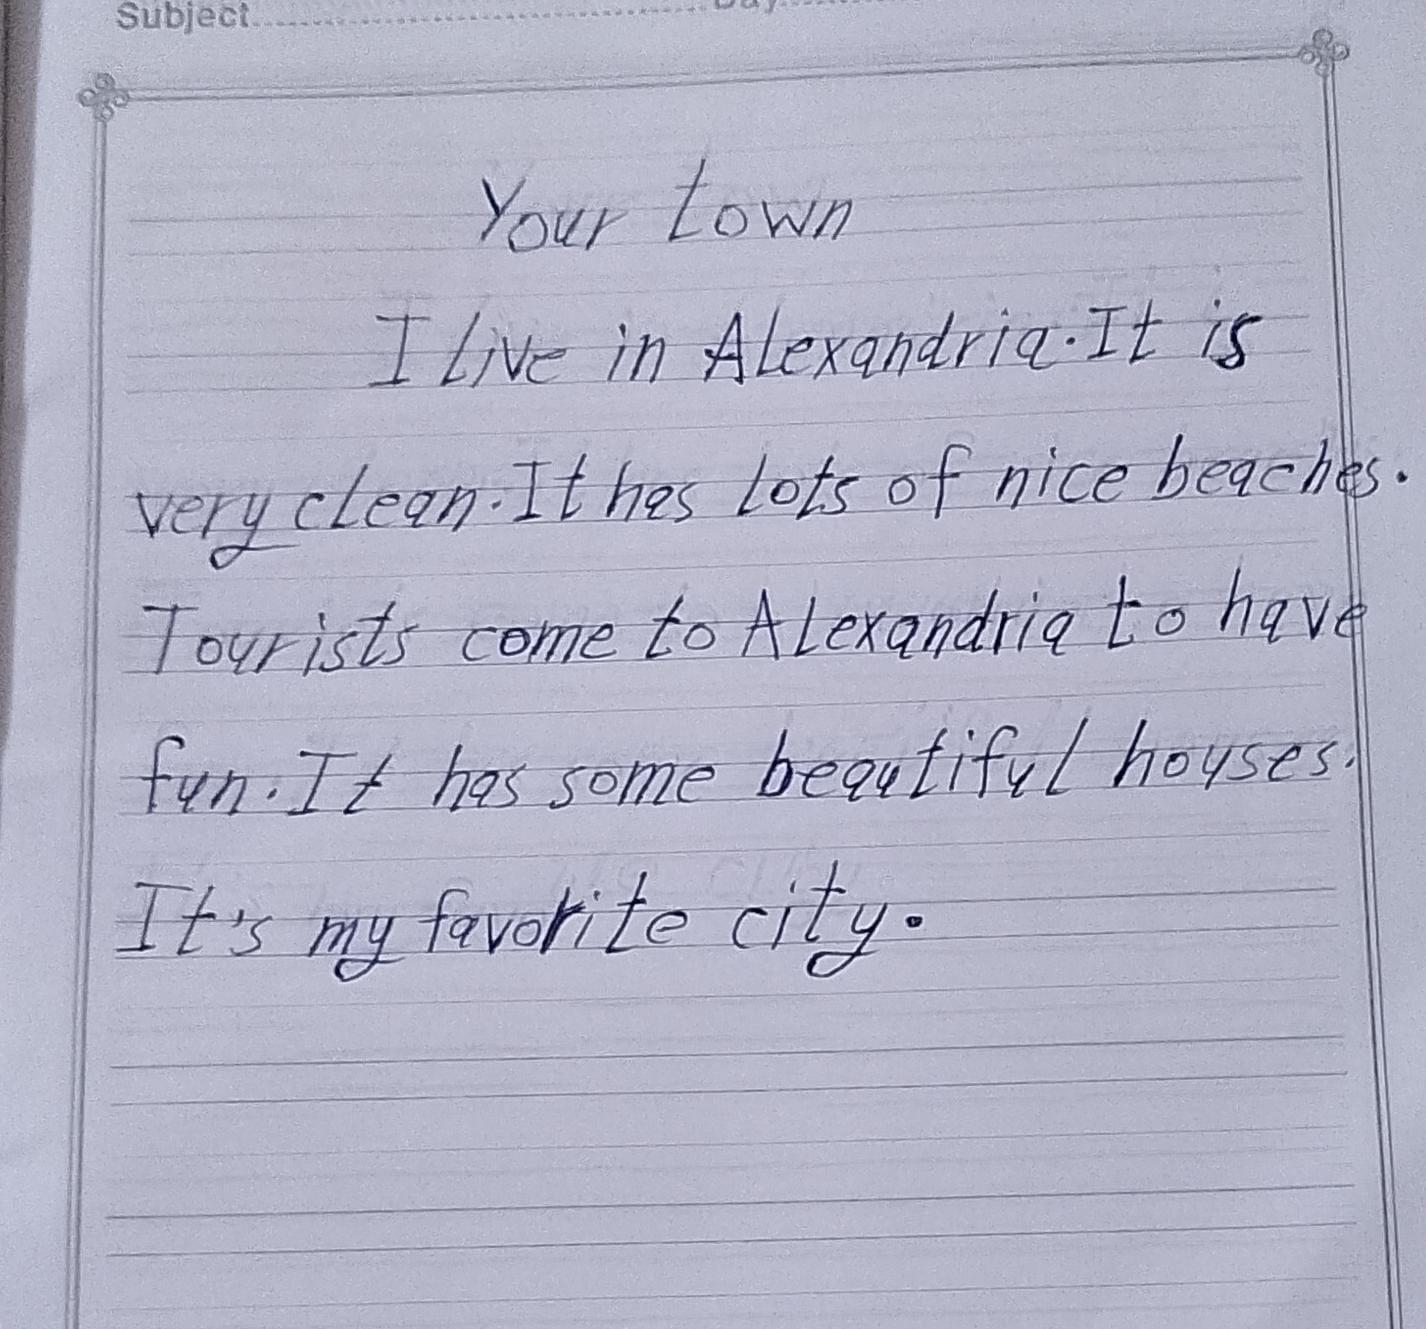 Subject
Your town
I live in Alexandria. It is
very clean. It has lots of nice beaches.
Tourists come to Alexandria to have
fun. It has some beautiful houses.
It's my favorite city.